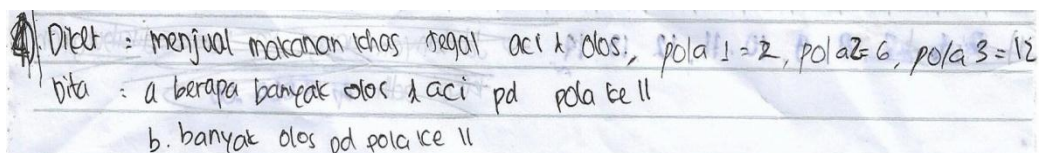 4). Diket : menjual makanan khas tegal aci & olos., pola 1 = 2, pola 2 = 6, pola 3 = 12
Dita : a berapa banyak olos & aci pd pola ke 11
b. banyak olos pd pola ke 11